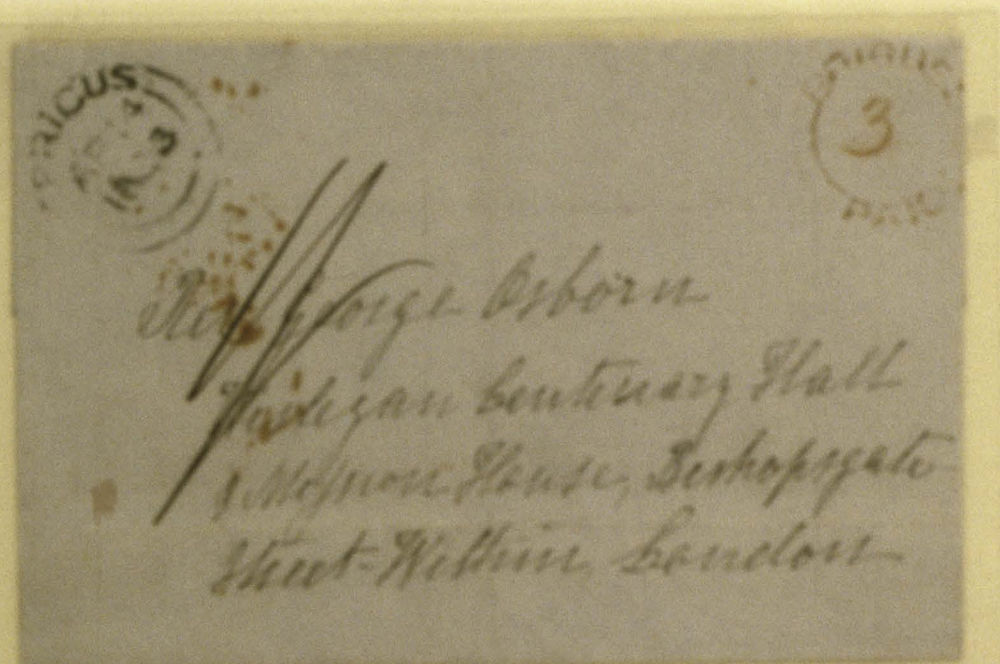 RICUS
3
3
PAID
Rev George Osborn
Wesleyan Centenary Hall
& Mission House, Bishopsgate
Street Within, London